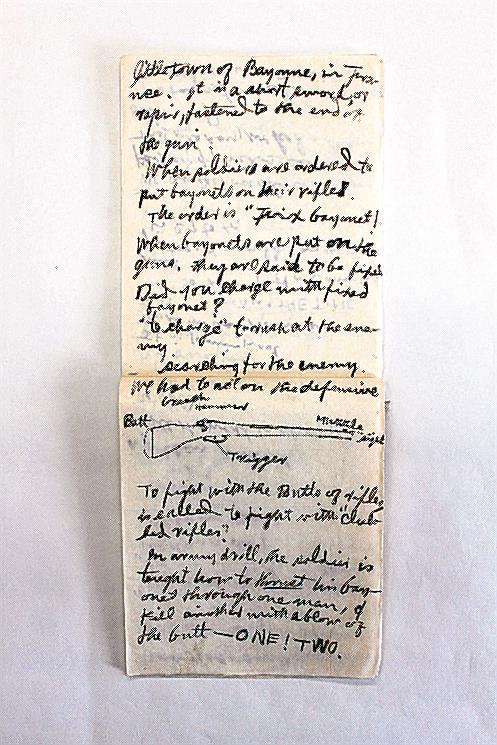 little town of Bayonne, in Fra-
nce. It is a short sword, or
rapir, fastened to the end of
the gun
When soldiers are ordered to
put bayonets on their rifles.
The order is "Fix bayonet!
When bayonets are put on the
guns. they are said to be fixed
Did you charge with fixed
bayonet?
"to charge" to rush at the ene-
my
searching for the enemy.
We had to act on the defensive
breach
hammer
Butt
Muzzle
sight
Trigger
To fight with the Butts of rifles
is called to fight with "club-
bed rifles".
In army drill, the soldier is
taught how to thrust his bay-
onet through one man, &
kill another with a blow of
the butt — ONE! TWO.